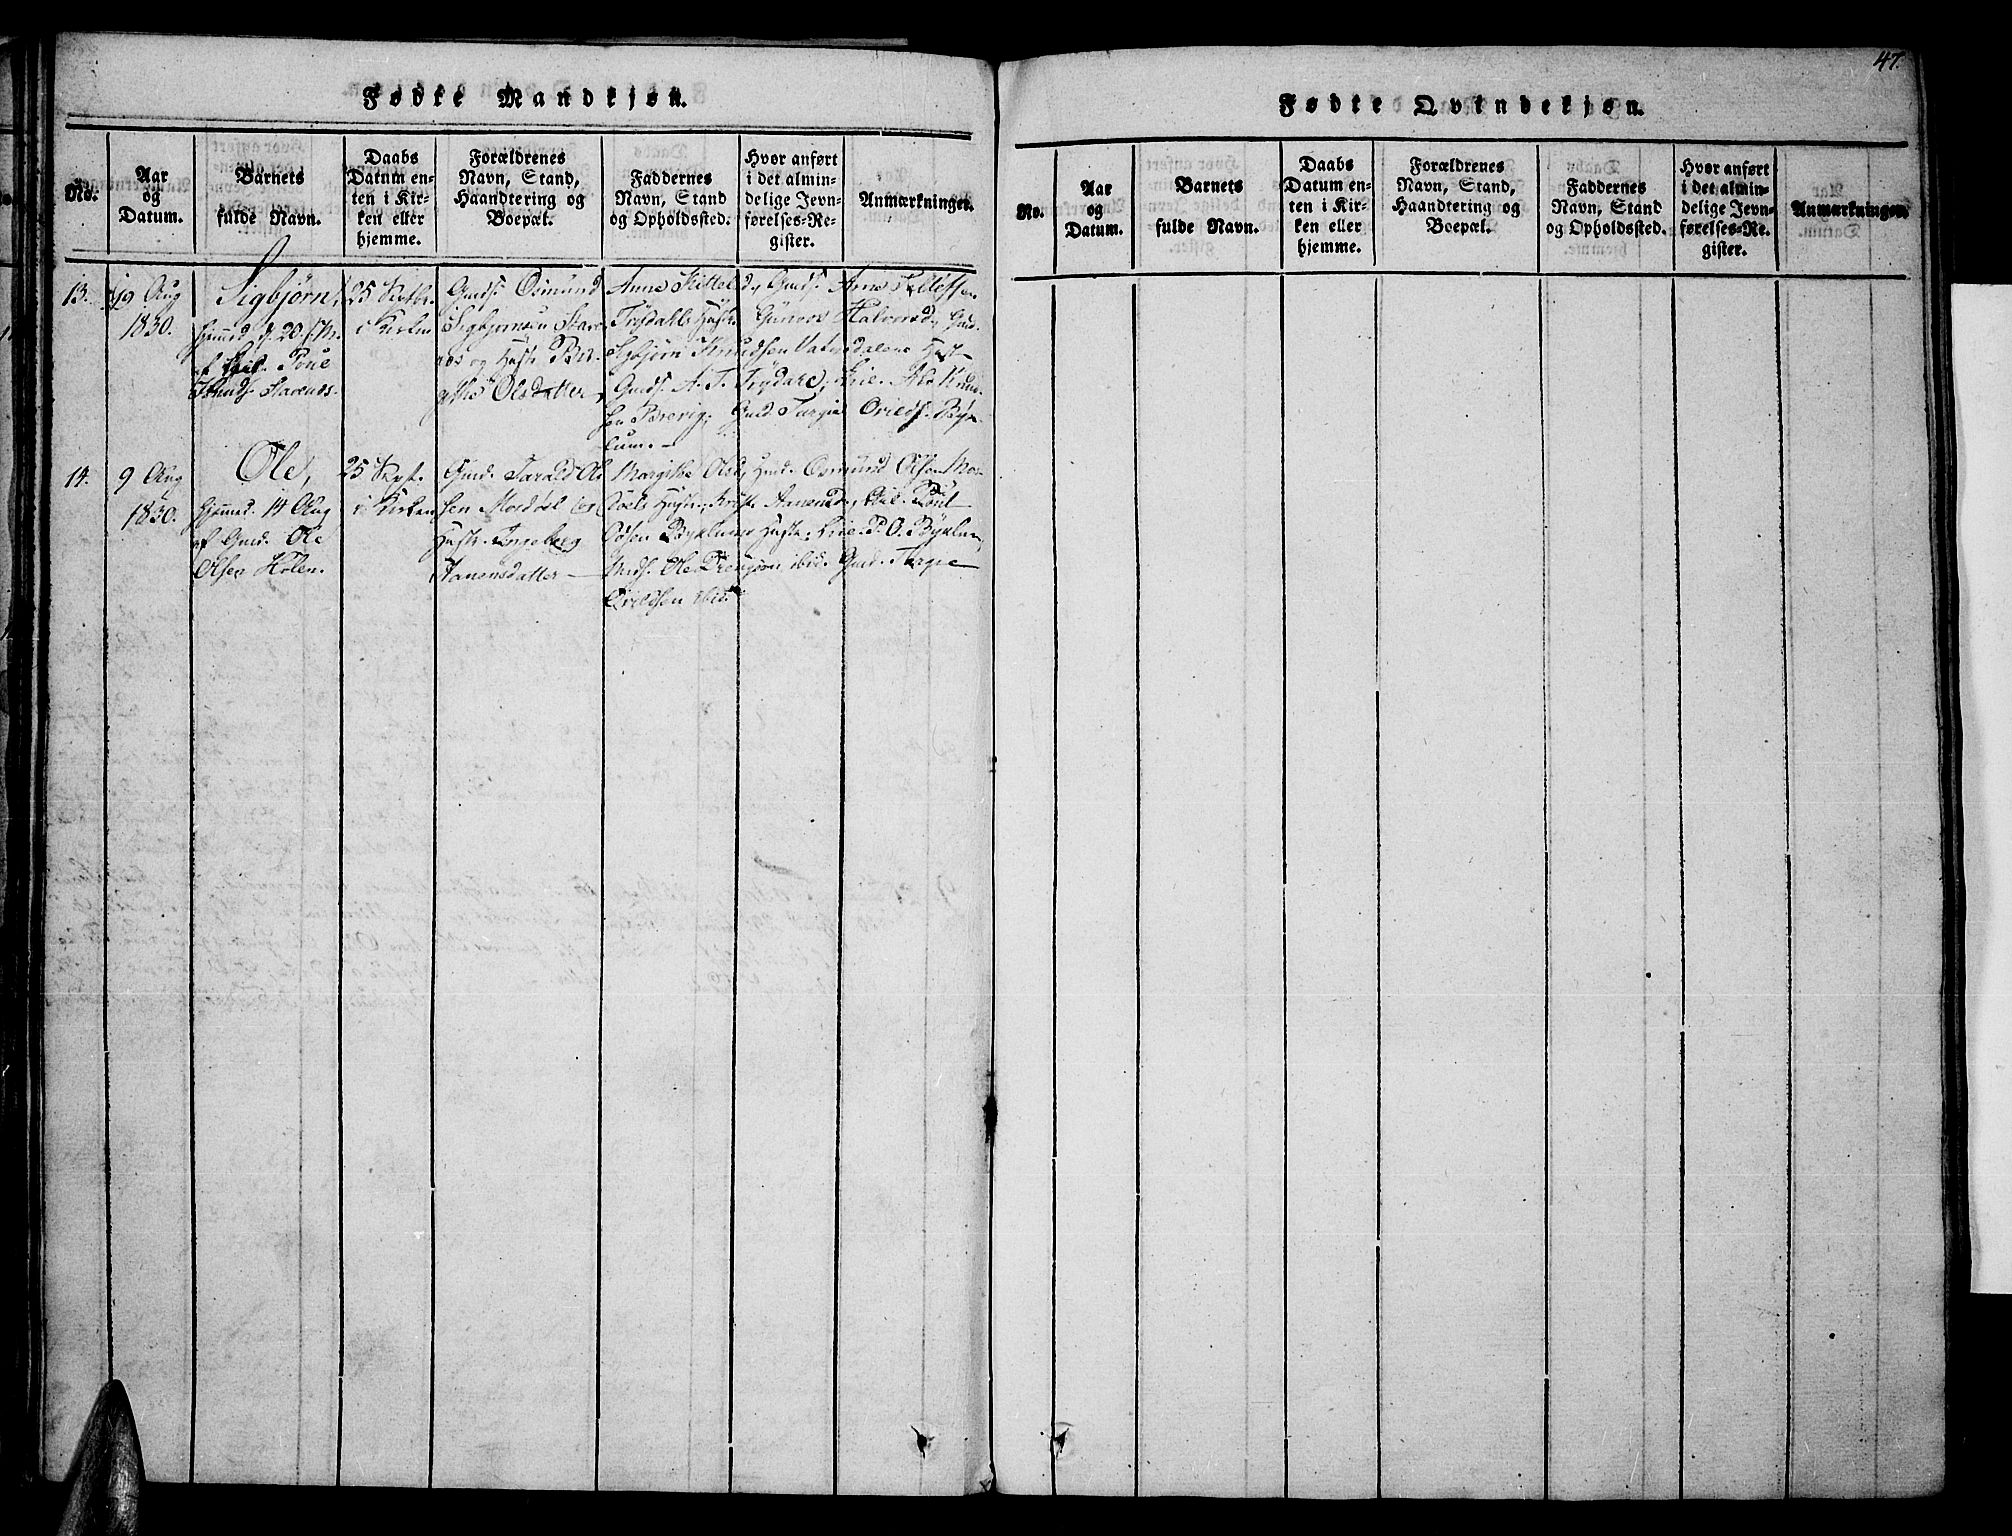 47.
Fødte Mandkjøn.
No.
Aar
og
Datum.
Barnets
fulde Navn.
Daabs
Datum en-
ten i Kir-
ken eller
hjemme.
Forældrenes
Navn, Stand,
Haandtering og
Boepæl.
Faddernes
Navn, Stand
og Opholdssted.
Hvor anført
i det almin-
delige Jevn-
førelses-Re-
gister.
Anmærkninger.
13.
19 Aug
1830.
Sigbjørn,
hjemmed. d. 20 s. M.
af
Knuds.
25 Septbr.
i Kirken
Gmd. Osmund
Sigbjørnsen
og Hustr. Bir-
githe Olsdatter,
Anne Kittelsd., Gmds. Arne Tellefsen
Trydals Hustr. Gunvor Halvorsd., Gmd.
Sigbjørn Knudsen Vatnedalens Hust-
Gmds. A. T. Trydal, Knud-
sen Breivig; Gmd. Targie Orieds. Byk-
lum.
14.
9 Aug
1830.
Ole,
hjemmed. 14 Aug
af Gmd. Ole
Olsen Holen.
25 Sept.
i Kirken
Gmd. Tarald Ol
sen Mosdøl og
Hustr. Ingeborg
Aanensdatter
Margithe Olsd., Gmd. Osmund Olsen Mos-
døls Hustr., Aanensd., Poul
Odsen Byklums Hustr., P. O. Byklum,
Ole ibid. Gmd. Targie
Orieldsen ibid.
Fødte Qvindekjøn.
No.
Aar
og
Datum.
Barnets
fulde Navn.
Daabs
Datum en-
ten i Kir-
ken eller
hjemme.
Forældrenes
Navn, Stand,
Haandtering og
Boepæl.
Faddernes
Navn, Stand
og Opholdssted.
Hvor anført
i det almin-
delige Jevn-
førelses-Re-
gister.
Anmærkninger